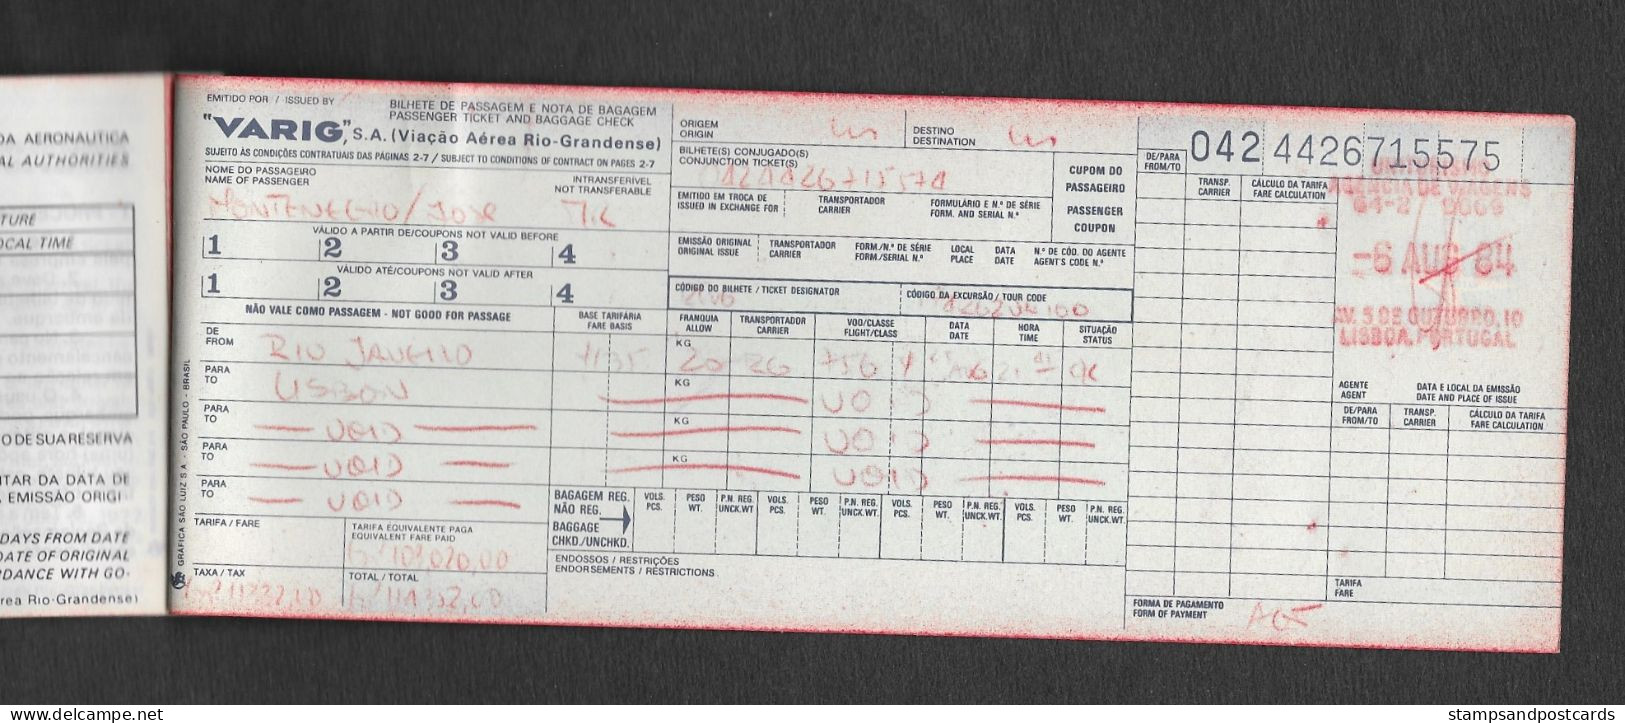 DA AERONAUTICA
AL AUTHORITIES
TURE
OCAL TIME
O DE SUA RESERVA
NTAR DA DATA DE
EMISSÃO ORIGI-
DAYS FROM DATE
DATE OF ORIGINAL
DANCE WITH GO-
rea Rio-Grandense)
EMITIDO POR / ISSUED BY
BILHETE DE PASSAGEM E NOTA DE BAGAGEM
PASSENGER TICKET AND BAGGAGE CHECK
"VARIG", S.A. (Viação Aérea Rio-Grandense)
SUJEITO ÀS CONDIÇÕES CONTRATUAIS DAS PÁGINAS 2-7 / SUBJECT TO CONDITIONS OF CONTRACT ON PAGES 2-7
NOME DO PASSAGEIRO
NAME OF PASSENGER
INTRANSFERÍVEL
NOT TRANSFERABLE
MONTENEGRO/JOSE MR
VÁLIDO A PARTIR DE/COUPONS NOT VALID BEFORE
1 2 3 4
VÁLIDO ATÉ/COUPONS NOT VALID AFTER
1 2 3 4
NÃO VALE COMO PASSAGEM - NOT GOOD FOR PASSAGE
ORIGEM
ORIGIN
DESTINO
DESTINATION
BILHETE(S) CONJUGADO(S)
CONJUNCTION TICKET(S)
EMITIDO EM TROCA DE
ISSUED IN EXCHANGE FOR
TRANSPORTADOR
CARRIER
FORMULÁRIO E N.º DE SÉRIE
FORM. AND SERIAL N.º
CUPOM DO
PASSAGEIRO
PASSENGER
COUPON
EMISSÃO ORIGINAL
ORIGINAL ISSUE
TRANSPORTADOR
CARRIER
FORM./N.º DE SÉRIE
FORM./SERIAL N.º
LOCAL
PLACE
DATA
DATE
N.º DE CÓD. DO AGENTE
AGENT'S CODE N.º
CÓDIGO DO BILHETE / TICKET DESIGNATOR
CÓDIGO DA EXCURSÃO / TOUR CODE
BASE TARIFÁRIA
FARE BASIS
FRANQUIA
ALLOW
TRANSPORTADOR
CARRIER
VOO/CLASSE
FLIGHT/CLASS
DATA
DATE
HORA
TIME
SITUAÇÃO
STATUS
DE
FROM
RIO JANEIRO
KG
20 26 756 Y OK
PARA
TO
LISBON
KG
VOID
PARA
TO
VOID
KG
VOID
PARA
TO
VOID
KG
VOID
PARA
TO
VOID
BAGAGEM REG.
NÃO REG.
BAGGAGE
CHKD./UNCHKD.
VOLS.
PCS.
PESO
WT.
P.N. REG.
UNCK.WT
VOLS.
PCS.
PESO
WT.
P.N. REG.
UNCK.WT.
VOLS.
PCS.
PESO
WT.
P.N. REG.
UNCK.WT.
VOLS.
PCS.
PESO
WT.
P.N. REG.
UNCK.WT.
TARIFA / FARE
TARIFA EQUIVALENTE PAGA
EQUIVALENT FARE PAID
TAXA / TAX
TOTAL / TOTAL
ENDOSSOS / RESTRIÇÕES
ENDORSEMENTS / RESTRICTIONS
GRÁFICA SÃO LUIZ S A - SÃO PAULO - BRASIL
DE/PARA
FROM/TO
042 4426715575
TRANSP.
CARRIER
CÁLCULO DA TARIFA
FARE CALCULATION
AGENCIA DE VIAGENS
64-2 0069
-6 AUG 84
AV. 5 DE OUTUBRO, 10
LISBOA, PORTUGAL
AGENTE
AGENT
DATA E LOCAL DA EMISSÃO
DATE AND PLACE OF ISSUE
DE/PARA
FROM/TO
TRANSP.
CARRIER
CÁLCULO DA TARIFA
FARE CALCULATION
TARIFA
FARE
FORMA DE PAGAMENTO
FORM OF PAYMENT
stampsandpostcards